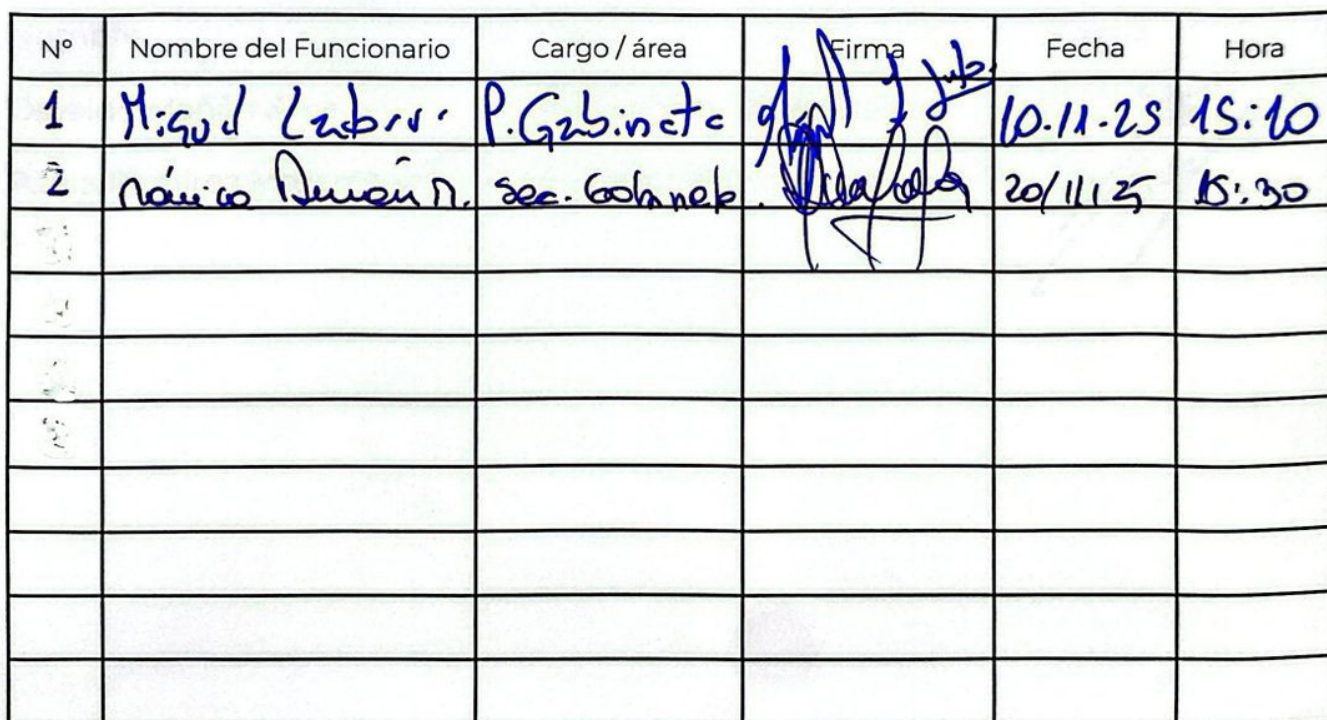 Nº Nombre del Funcionario Cargo / área Firma Fecha Hora
1 Miguel P. Gabinete 10.11.25 15:10
2 Mónica sec. Gabinete. 20/11/25 15:30